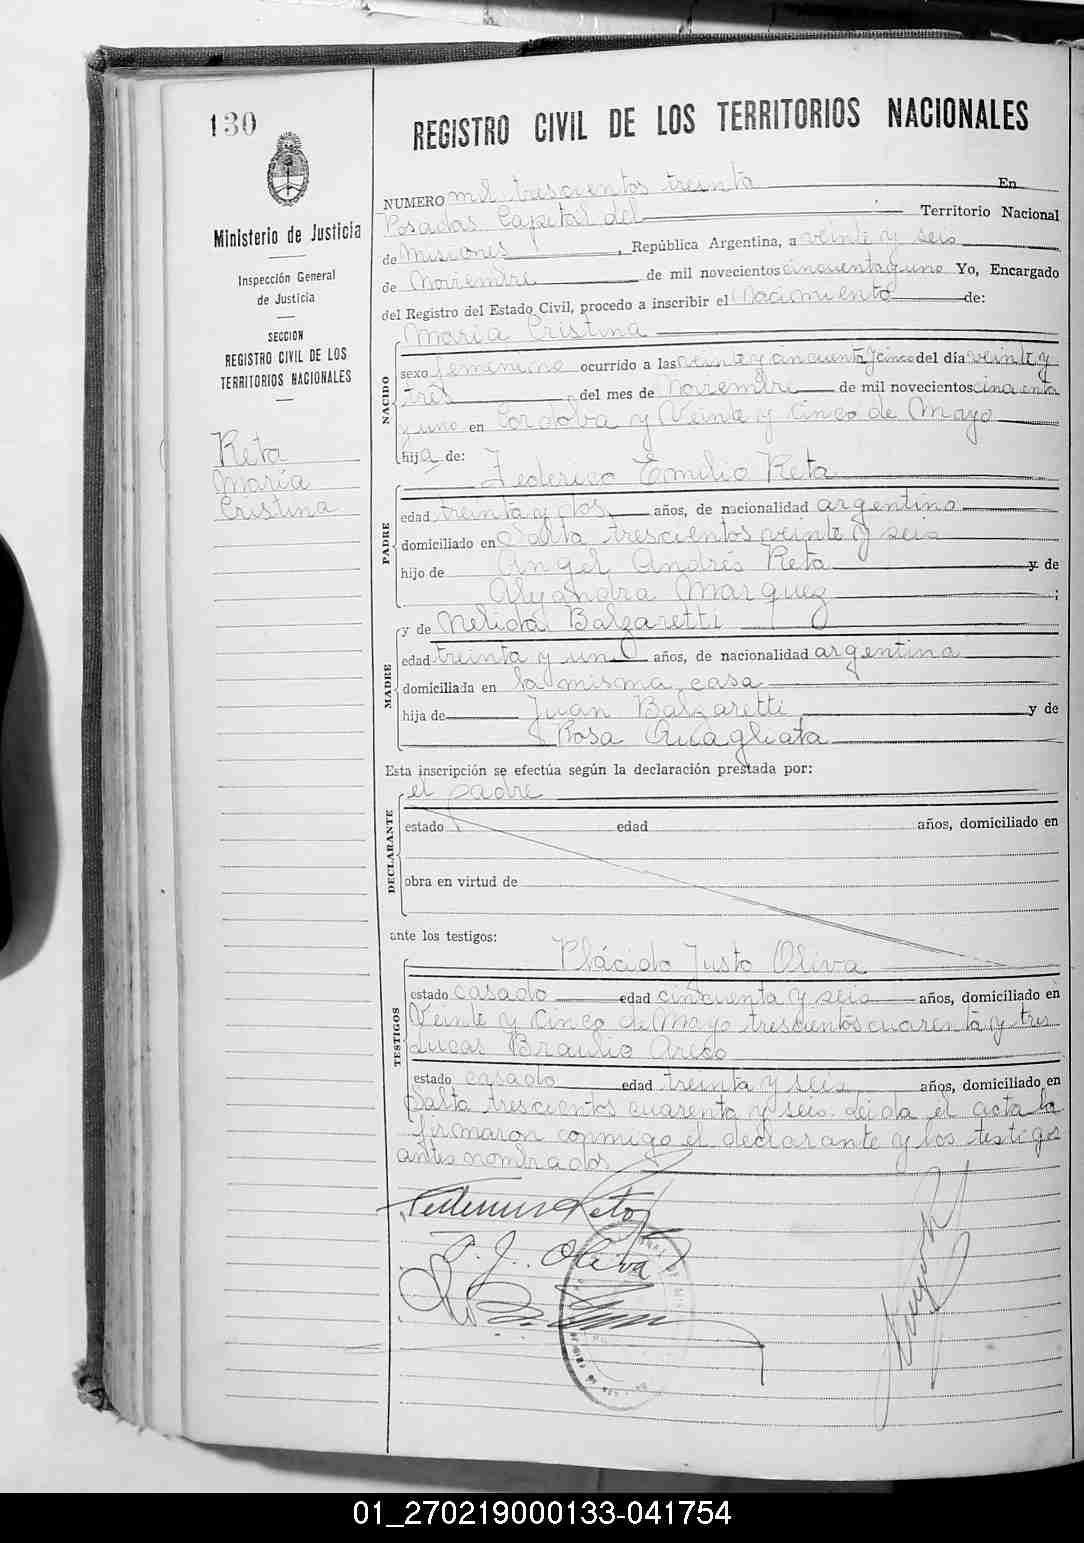 130
REGISTRO CIVIL DE LOS TERRITORIOS NACIONALES
Ministerio de Justicia
Inspección General
de Justicia
SECCION
REGISTRO CIVIL DE LOS
TERRITORIOS NACIONALES
Reta
María
Cristina
NUMERO mil trescientos treinta En
Posadas Capital del Territorio Nacional
de Misiones, República Argentina, a veinte y seis
de Noviembre de mil novecientos cincuenta y uno Yo, Encargado
del Registro del Estado Civil, procedo a inscribir el Nacimiento de:
NACIDO
María Cristina
sexo femenino ocurrido a las veinte y cincuenta y cinco del día veinte y
tres del mes de Noviembre de mil novecientos cincuenta
y uno en Cordoba y Veinte y Cinco de Mayo
hija de:
PADRE
Federico Emilio Reta
edad treinta y dos, años, de nacionalidad argentino
domiciliado en Salta trescientos veinte y seis
hijo de Angel Andrés Reta y de
Alejandra Marquez;
MADRE
y de Nelida Balzaretti
edad treinta y uno años, de nacionalidad argentina
domiciliada en la misma casa
hija de Juan Balzaretti y de
Rosa Quagliata
Esta inscripción se efectúa según la declaración prestada por:
DECLARANTE
el padre
estado edad años, domiciliado en
obra en virtud de
ante los testigos:
TESTIGOS
Plácido Justo Oliva
estado casado edad cincuenta y seis años, domiciliado en
Veinte y Cinco de Mayo trescientos cuarenta y tres
Lucas Braulio
estado casado edad treinta y seis años, domiciliado en
Salta trescientos cuarenta y seis. Leida el acta la
firmaron conmigo el declarante y los testigos
antes nombrados
Reta
P. J. Oliva
01_270219000133-041754